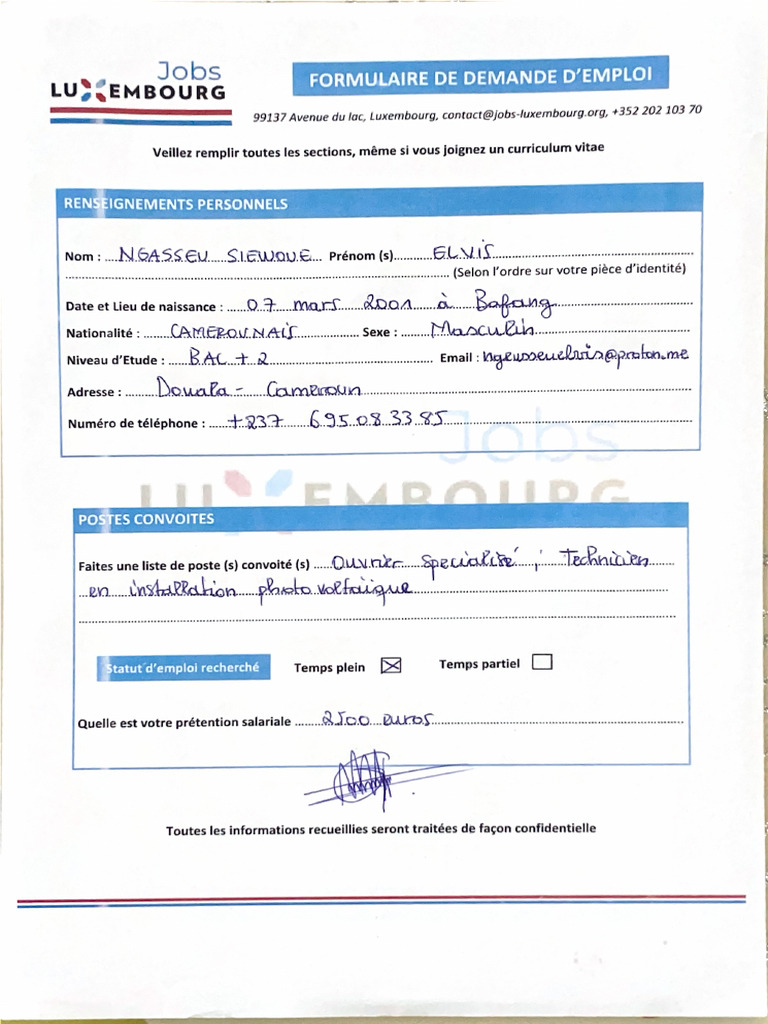 Jobs
LUXEMBOURG
FORMULAIRE DE DEMANDE D'EMPLOI
99137 Avenue du lac, Luxembourg, contact@jobs-luxembourg.org, +352 202 103 70
Veillez remplir toutes les sections, même si vous joignez un curriculum vitae
RENSEIGNEMENTS PERSONNELS
Nom : NGASSEU SIEWOUE Prénom (s) ELVIS
(Selon l'ordre sur votre pièce d'identité)
Date et Lieu de naissance : 07 mars 2001 à Bafang
Nationalité : CAMEROUNAIS Sexe : Masculin
Niveau d'Etude : BAC + 2 Email : ngeusseuelvis@proton.me
Adresse : Douala - Cameroun
Numéro de téléphone : +237 695.08.33.85
Jobs
LUXEMBOURG
POSTES CONVOITES
Faites une liste de poste (s) convoité (s) Ouvrier Specialisé ; Technicien
en installation photovoltaïque
Statut d'emploi recherché Temps plein ☒ Temps partiel ☐
Quelle est votre prétention salariale 2500 euros
Toutes les informations recueillies seront traitées de façon confidentielle